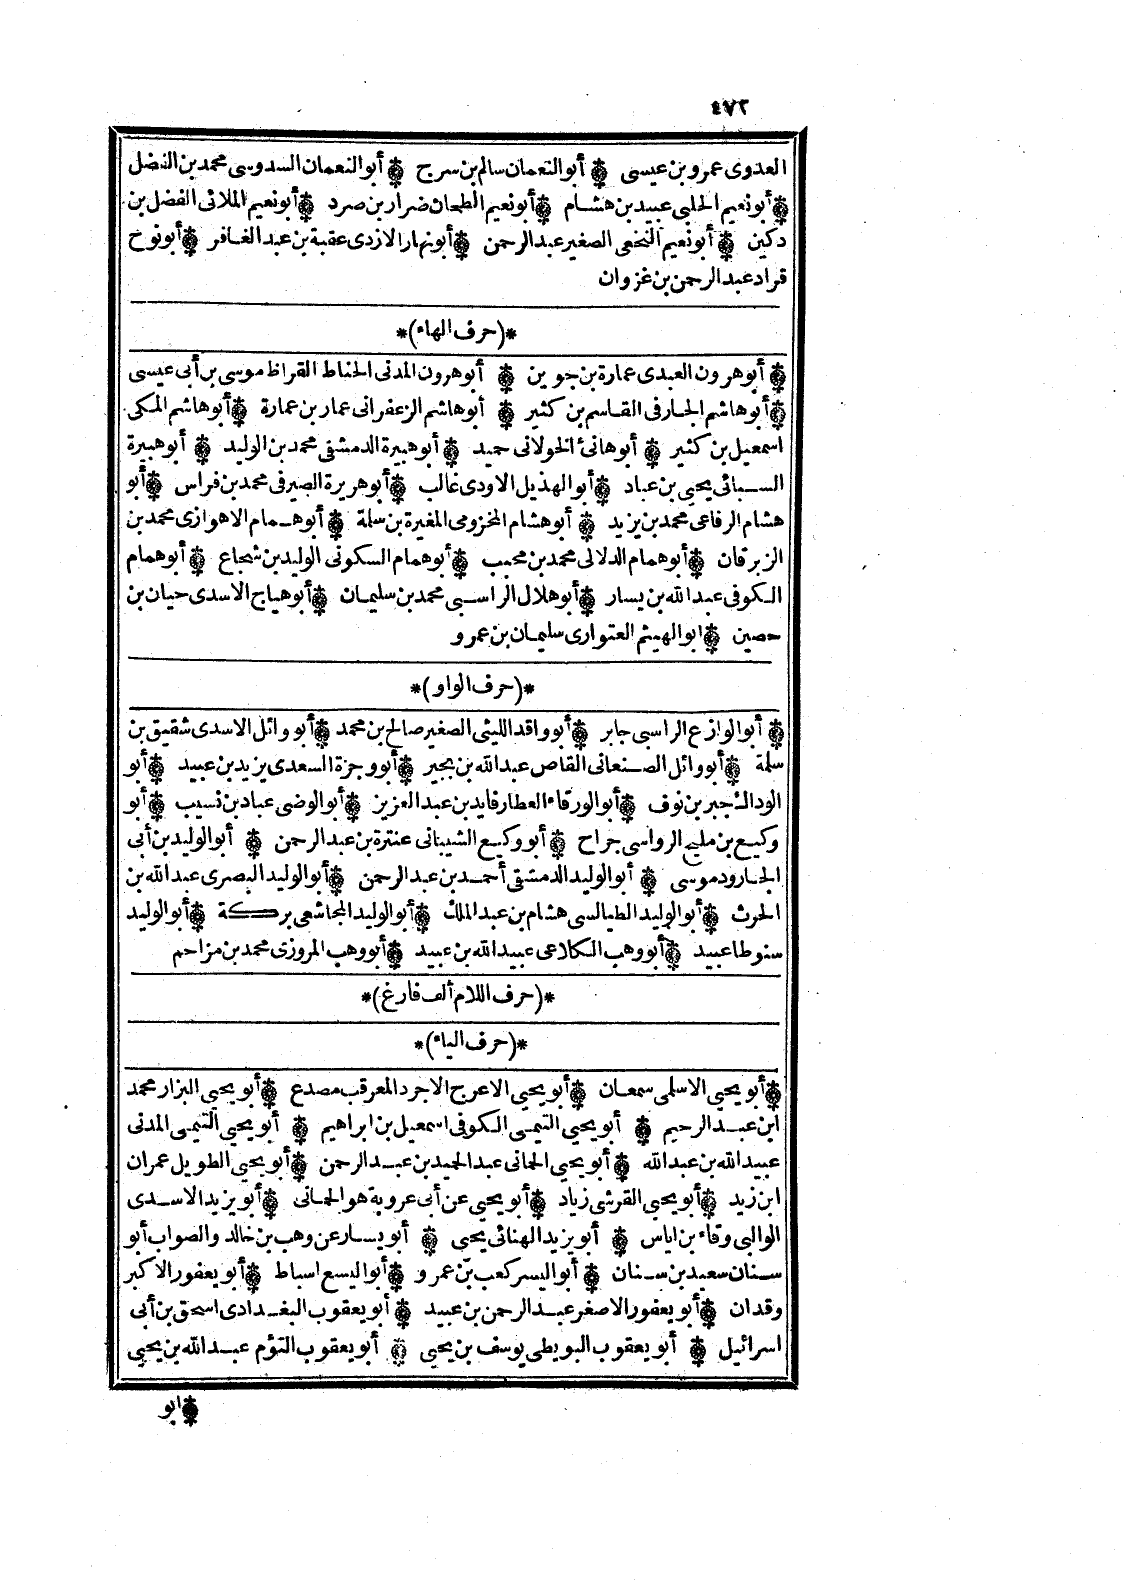 ٤٧٢
العدوى عمرو بن عيسى * أبو النعمان سالم بن سرج * أبو النعمان السدوسى محمد بن الفضل
* أبو نعيم الحلبى عبيد بن هشام * أبو نعيم الطحان ضرار بن صرد * أبو نعيم الملائى الفضل بن
دكين * أبو نعيم النخعى الصغير عبد الرحمن * أبو نهار الازدى عقبة بن عبد الغافر * أبو نوح
قراد عبد الرحمن بن غزوان
*(حرف الهاء)*
* أبو هرون العبدى عمارة بن جوين * أبو هرون المدنى الحناط القراظ موسى بن أبى عيسى
* أبو هاشم الحارفى القاسم بن كثير * أبو هاشم الزعفرانى عمار بن عمارة * أبو هاشم المكى
اسمعيل بن كثير * أبو هانئ الخولانى حميد * أبو هبيرة الدمشقى محمد بن الوليد * أبو هبيرة
السبائى يحيى بن عباد * أبو الهذيل الاودى غالب * أبو هريرة الصيرفى محمد بن فراس * أبو
هشام الرفاعى محمد بن يزيد * أبو هشام المخزومى المغيرة بن سلمة * أبو همام الاهوازى محمد بن
الزبرقان * أبو همام الدلالى محمد بن محبب * أبو همام السكونى الوليد بن شجاع * أبو همام
الكوفى عبد الله بن يسار * أبو هلال الراسبى محمد بن سليمان * أبو هياج الاسدى حيان بن
حصين * ابو الهيثم العتوارى سليمان بن عمرو
*(حرف الواو)*
* أبو الوازع الراسبى جابر * أبو واقد الليثى الصغير صالح بن محمد * أبو وائل الاسدى شقيق بن
سلمة * أبو وائل الصنعانى القاص عبد الله بن بجير * أبو وجزة السعدى يزيد بن عبيد * أبو
الوداك جبر بن نوف * أبو الورقاء العطار فايد بن عبد العزيز * أبو الوضى عباد بن نسيب * أبو
وكيع بن مليح الرواسى جراح * أبو وكيع الشيبانى عنترة بن عبد الرحمن * أبو الوليد بن أبى
الجارود موسى * أبو الوليد الدمشقى أحمد بن عبد الرحمن * أبو الوليد البصرى عبد الله بن
الحرث * أبو الوليد الطيالسى هشام بن عبد الملك * أبو الوليد المجاشعى بركة * أبو الوليد
سنوطا عبيد * أبو وهب الكلاعى عبيد الله بن عبيد * أبو وهب المروزى محمد بن مزاحم
*(حرف اللام ألف فارغ)*
*(حرف الياء)*
* أبو يحيى الاسلمى سمعان * أبو يحيى الاعرج الاجرد المعرقب مصدع * أبو يحيى البزار محمد
ابن عبد الرحيم * أبو يحيى التيمى الكوفى اسمعيل بن ابراهيم * أبو يحيى التيمى المدنى
عبيد الله بن عبد الله * أبو يحيى الحمانى عبد الحميد بن عبد الرحمن * أبو يحيى الطويل عمران
ابن زيد * أبو يحيى القرشى زياد * أبو يحيى عن أبى عروبة هو الحمانى * أبو يزيد الاسدى
الوالبى وقاء بن اياس * أبو يزيد الهنائى يحيى * أبو يسار عن وهب بن خالد والصواب أبو
سنان سعيد بن سنان * أبو اليسر كعب بن عمرو * أبو اليسع اسباط * أبو يعفور الاكبر
وقدان * أبو يعفور الاصغر عبد الرحمن بن عبيد * أبو يعقوب البغدادى اسحق بن أبى
اسرائيل * أبو يعقوب البويطى يوسف بن يحيى * أبو يعقوب التؤم عبد الله بن يحيى
* ابو